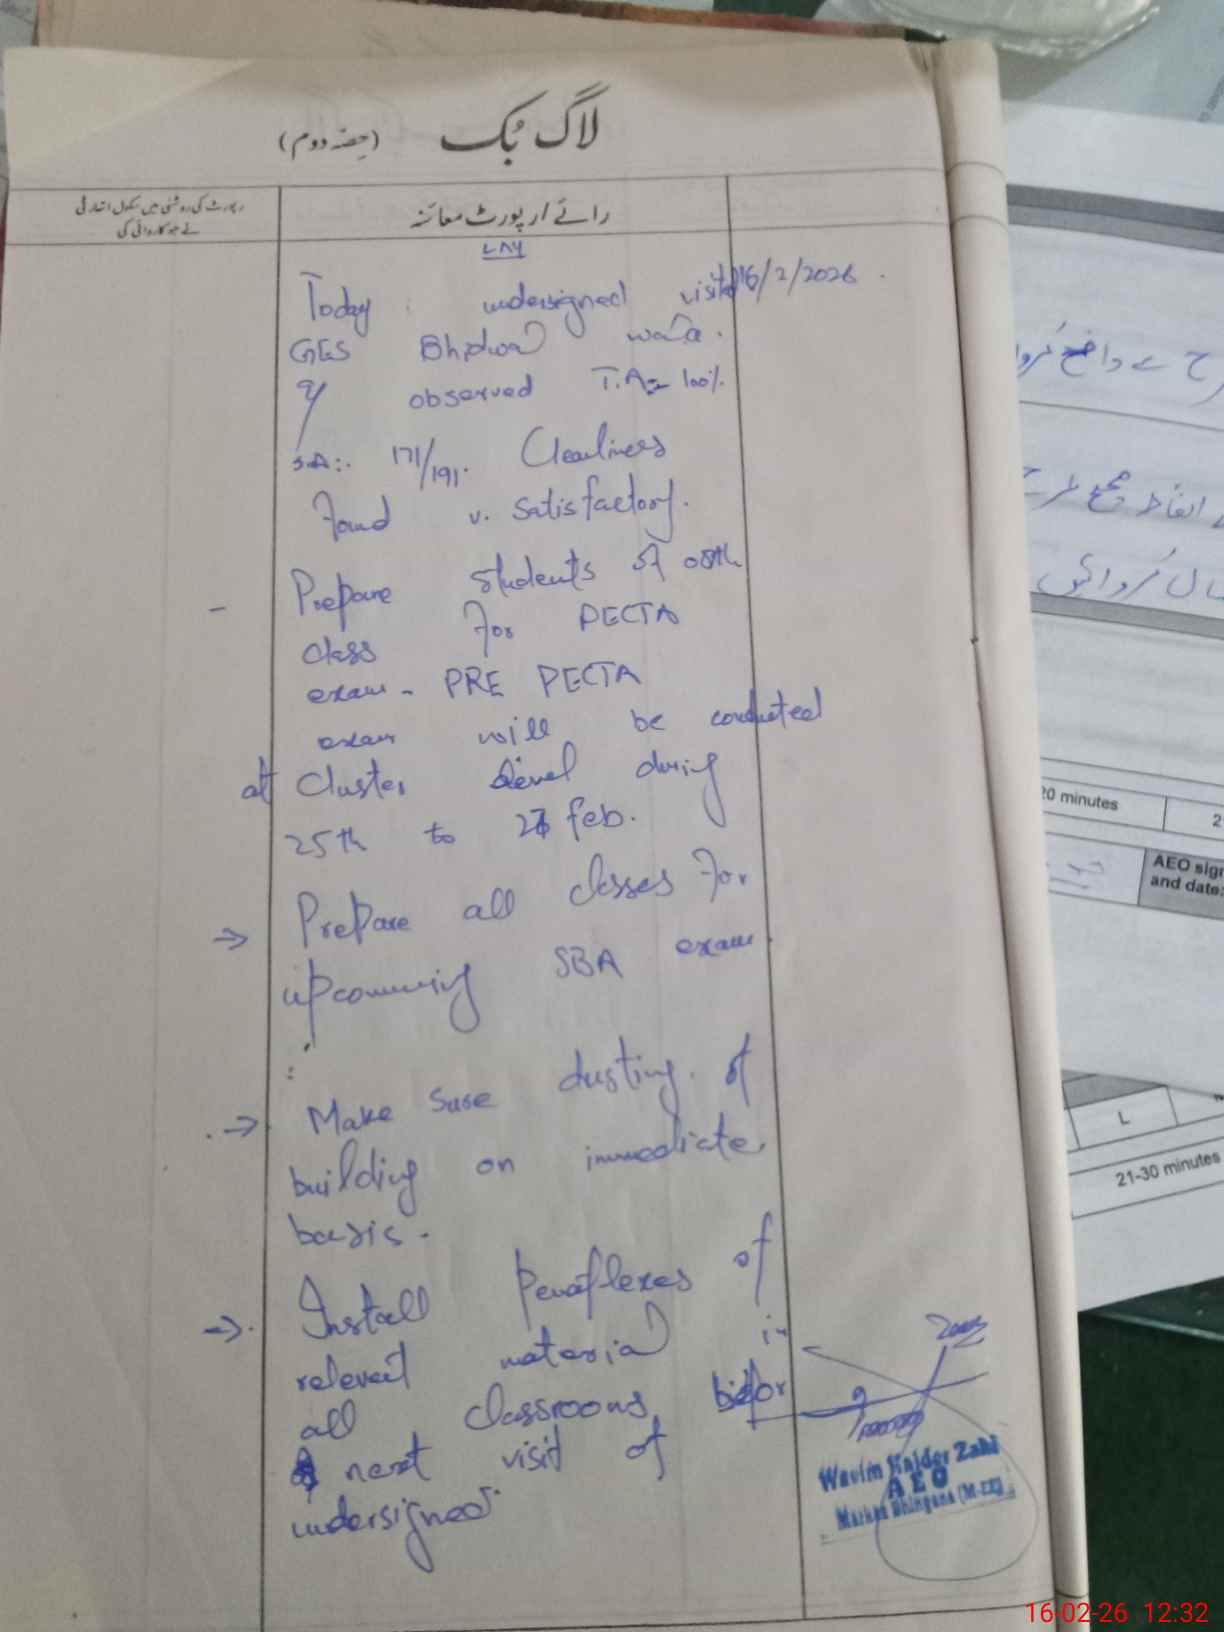 لاگ بُک (حصّہ دوم)
رپورٹ کی روشنی میں سکول اتھارٹی
نے جو کاروائی کی
رائے / رپورٹ معائنہ
Today undersigned visited 16/2/2026.
GES
observed T.A = 100%
S.A:. 171/191. Cleanliness
Found v. satisfactory.
- Prepare students of 08th
class for PECTA
exam - PRE PECTA
exam will be conducted
at Cluster level during
25th to feb.
→ Prepare all classes For
upcomming SBA exam
→ Make sure dusting of
building on immediate
basis.
→ Install Penaflexes of
relevent material in
all classrooms befor
next visit of
undersigned
AEO
20 minutes
AEO sign
and date:
L
21-30 minutes
16-02-26 12:32